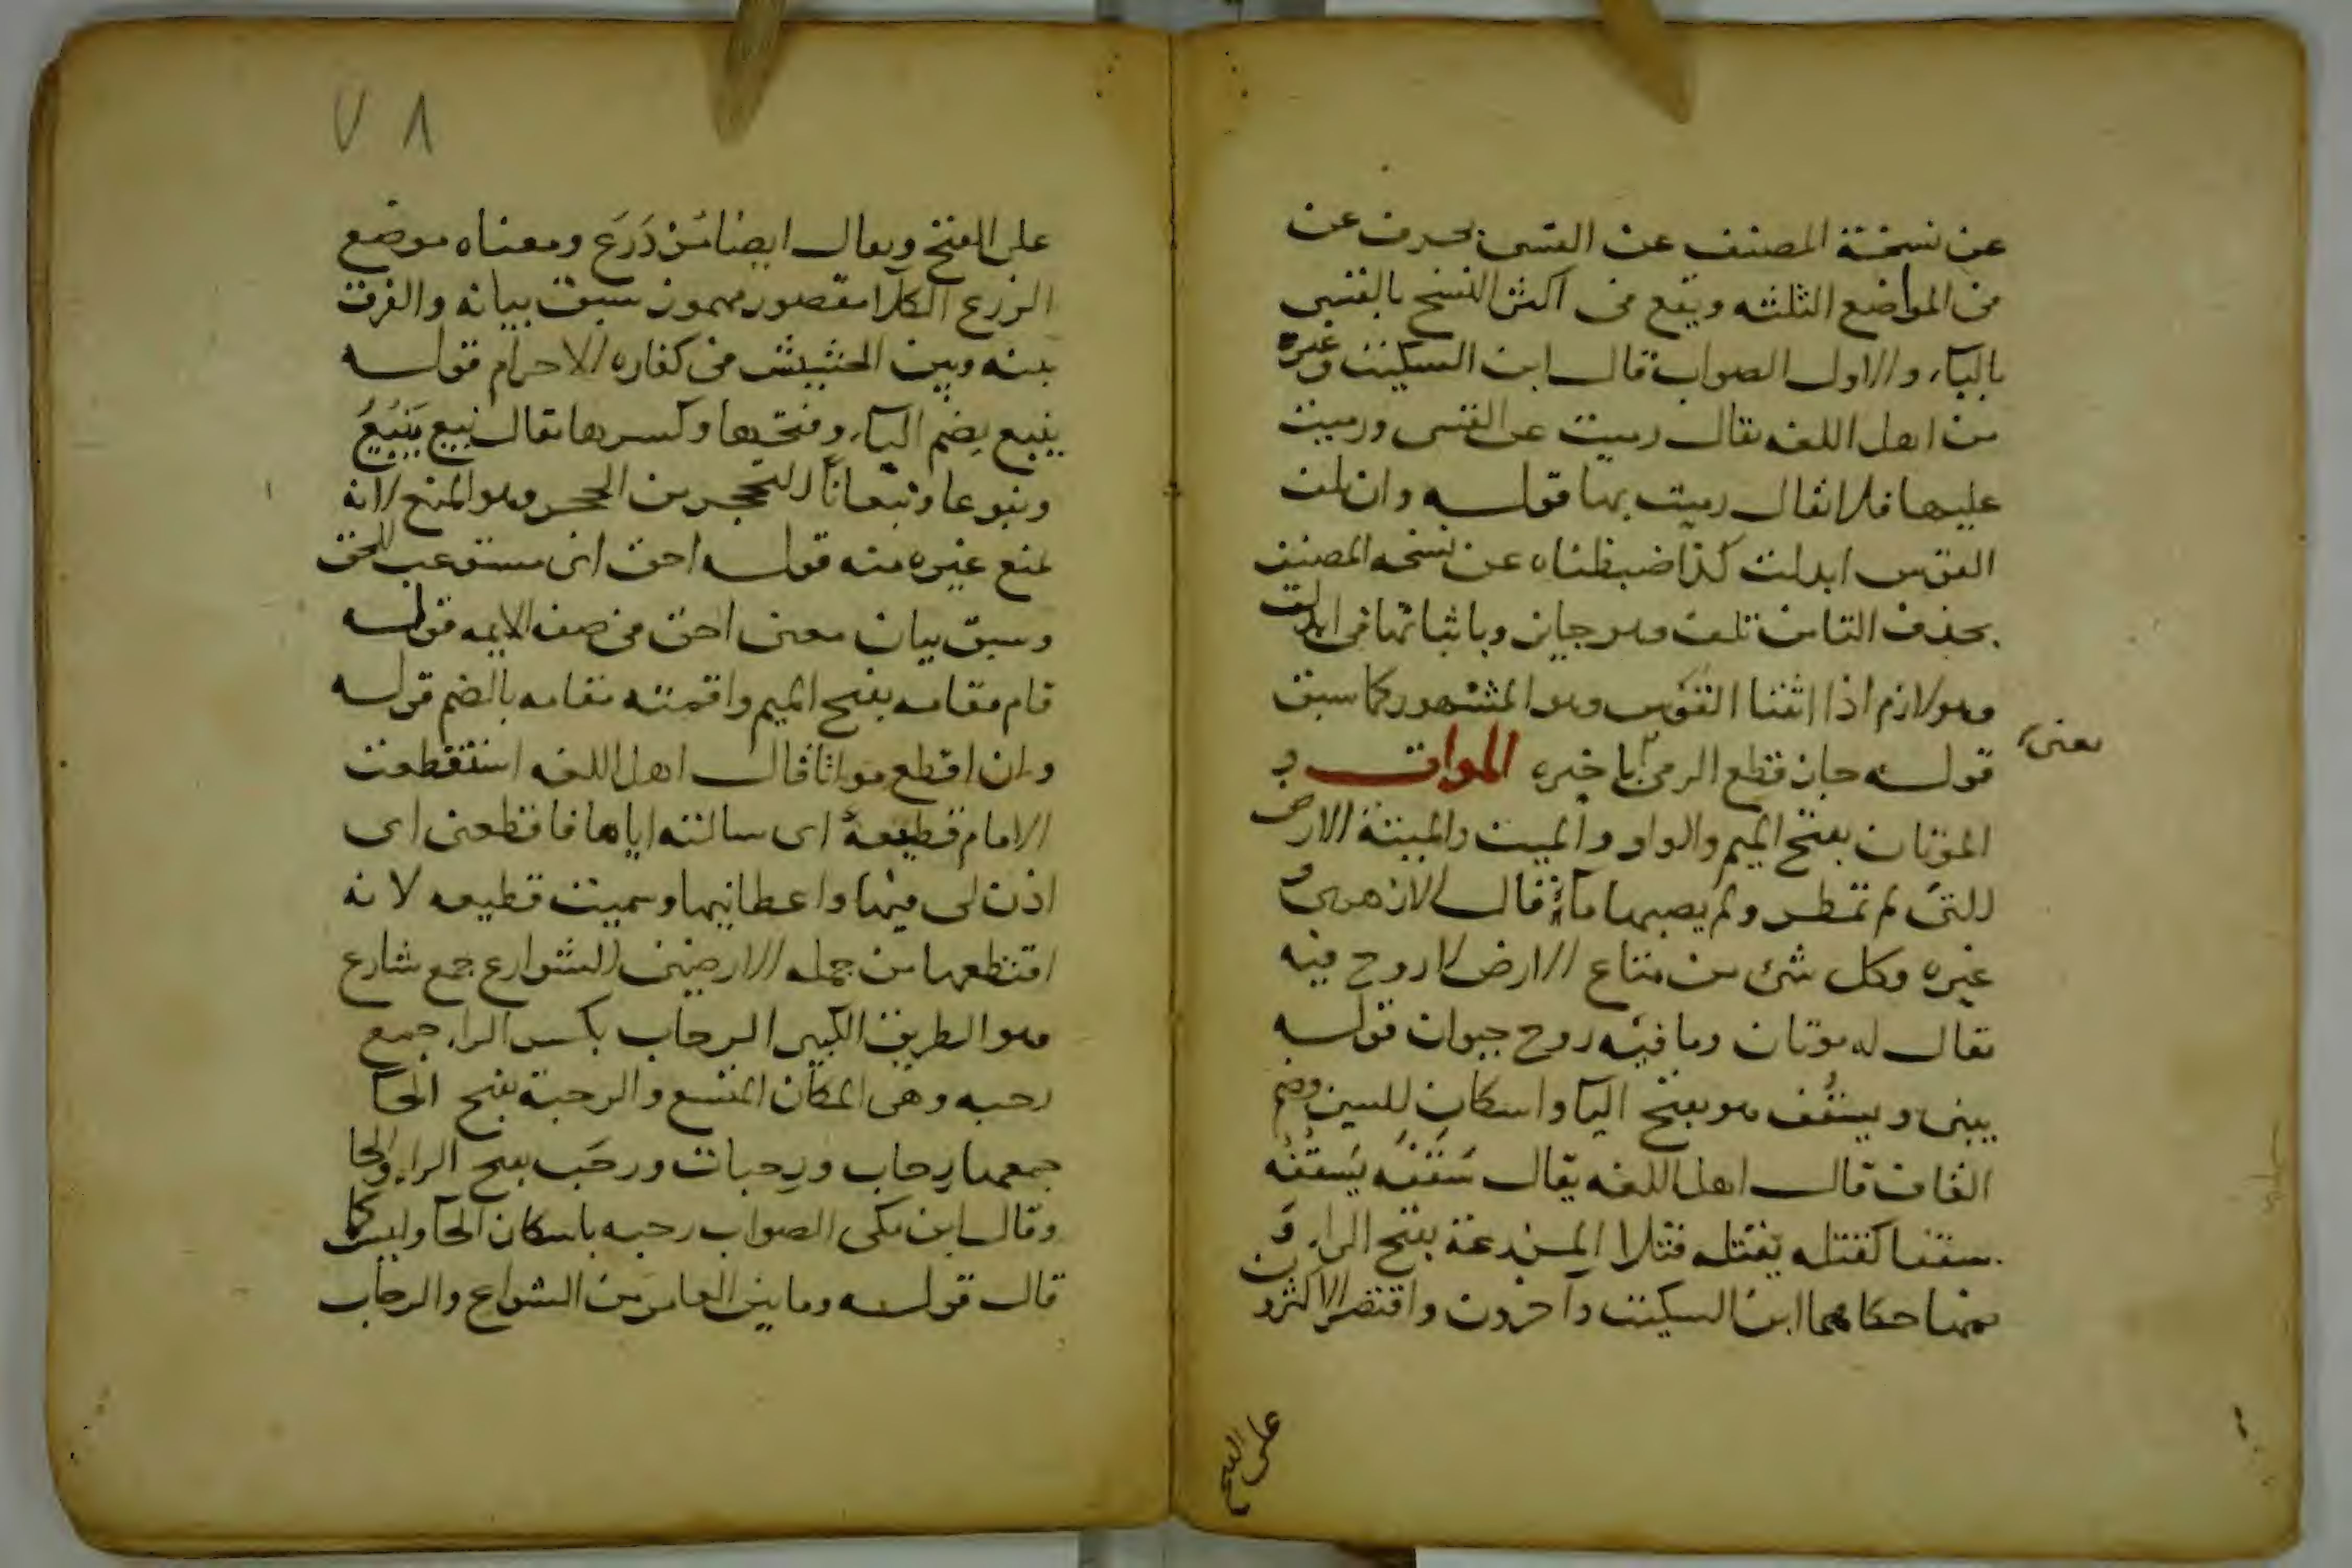 عن نسخة المصنف عن القسى بحرف عن
فى المواضع الثلثه ويقع فى اكثر النسخ بالقسى
بالباء والاول الصواب قال ابن السكيت وغيره
من اهل اللغه يقال رميت عن القسى ورميت
عليها فلا يقال رميت بها قوله وان تلف
القوس ابدلت كذا ضبطناه عن نسخه المصنف
بحذف التا من تلف وهو جايز وباثباتها فى ابدلت
وهو لازم اذا انثنا القوس وهو المشهور كما سبق
قوله جاز قطع الرمى باخيره الموات
معنى
الموتان بفتح الميم والواو والميت والميتة الارض
التى لم تمطر ولم يصبها ماء قال الازهرى و
غيره وكل شئ من متاع الارض لا روح فيه
يقال له موتان وما فيه روح حيوان قوله
يبنى ويسقف هو بفتح اليا واسكان السين وضم
القاف قال اهل اللغه يقال سَقَفَه يَسقُفُه
سقفا كقتله يقتله قتلا المزرعة بفتح الراء و
ضمها حكاهما ابن السكيت وآخرون واقتصر الاكثرون
على الفتح
٧٨
على الفتح ويقال ايضا مُزْدَرَع ومعناه موضع
الزرع الكلا مقصور مهموز سبق بيانه والفرق
بينه وبين الحشيش فى كفاره الاحرام قوله
ينبع بضم الباء وفتحها وكسرها يقال نبع يَنبُعُ
ونبوعا ونبعاناً التحجر من الحجر وهو المنع لانه
لمنع غيره منه قوله احق اى مستوعب للحق
وسبق بيان معنى احق فى صفه الايمه قوله
قام مقامه بفتح الميم واقمته مقامه بالضم قوله
وان اقطع مواتا قال اهل اللغه استقطعت
الامام قطيعة اى سالته اياها فاقطعنى اى
اذن لى فيها واعطانيها وسميت قطيعه لانه
اقتطعها من جمله الارضين الشوارع جمع شارع
وهو الطريق الكبير الرحاب بكسر الراء جمع
رحبه وهى المكان المتسع والرحبة بفتح الحا
جمعها رِحاب ورحبات ورحَب بفتح الراء والحا
وقال ابن مكى الصواب رحبه باسكان الحا وليس كما
قال قوله وما بين العامر من الشوارع والرحاب